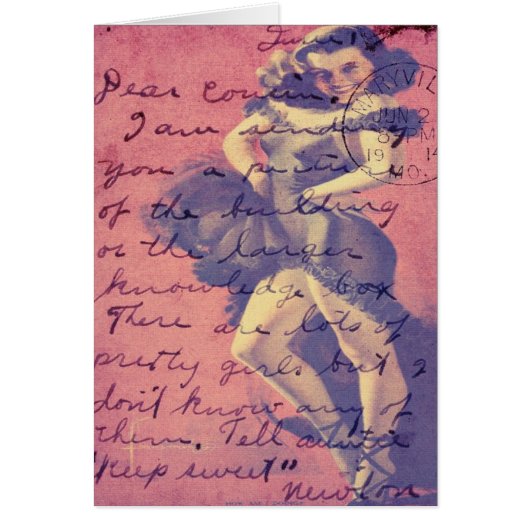 June 1
Dear Cousin,
I am sending
you a picture
of the building
or the larger
knowledge box
There are lots of
pretty girls but I
don't know any of
them. Tell auntie
"Keep sweet"
Newton
MARYVIL
JUN 2
8 PM
19 14
MO.